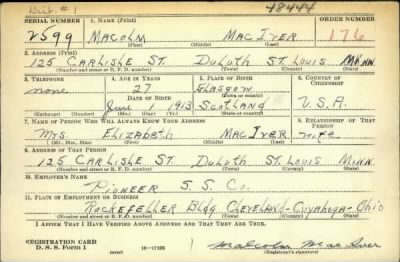 Dist. # 1 48444
SERIAL NUMBER 1. NAME (Print) ORDER NUMBER
2599 MALCOLM MAC IVER 176
(First) (Middle) (Last)
2. ADDRESS (Print)
125 CARLISLE ST. DULUTH ST. LOUIS MINN
(Number and street or R. F. D. number) (Town) (County) (State)
3. TELEPHONE 4. AGE IN YEARS 5. PLACE OF BIRTH 6. COUNTRY OF CITIZENSHIP
none 27 GLASGOW
DATE OF BIRTH (Town or county)
June 1 1913 SCOTLAND U.S.A.
(Mo.) (Day) (Yr.) (State or country)
7. NAME OF PERSON WHO WILL ALWAYS KNOW YOUR ADDRESS 8. RELATIONSHIP OF THAT PERSON
MRS ELIZABETH MAC IVER wife
(Mr., Mrs., Miss) (First) (Middle) (Last)
9. ADDRESS OF THAT PERSON
125 CARLISLE ST. DULUTH ST. LOUIS MINN.
(Number and street or R. F. D. number) (Town) (County) (State)
10. EMPLOYER'S NAME
PIONEER S. S. CO.
11. PLACE OF EMPLOYMENT OR BUSINESS
ROCKEFELLER BLDG CLEVELAND-CUYAHOGA-OHIO
(Number and street or R. F. D. number) (Town) (County) (State)
I AFFIRM THAT I HAVE VERIFIED ABOVE ANSWERS AND THAT THEY ARE TRUE.
REGISTRATION CARD
D. S. S. Form 1 (over) 16—17105 Malcolm Mac Iver
(Registrant's signature)